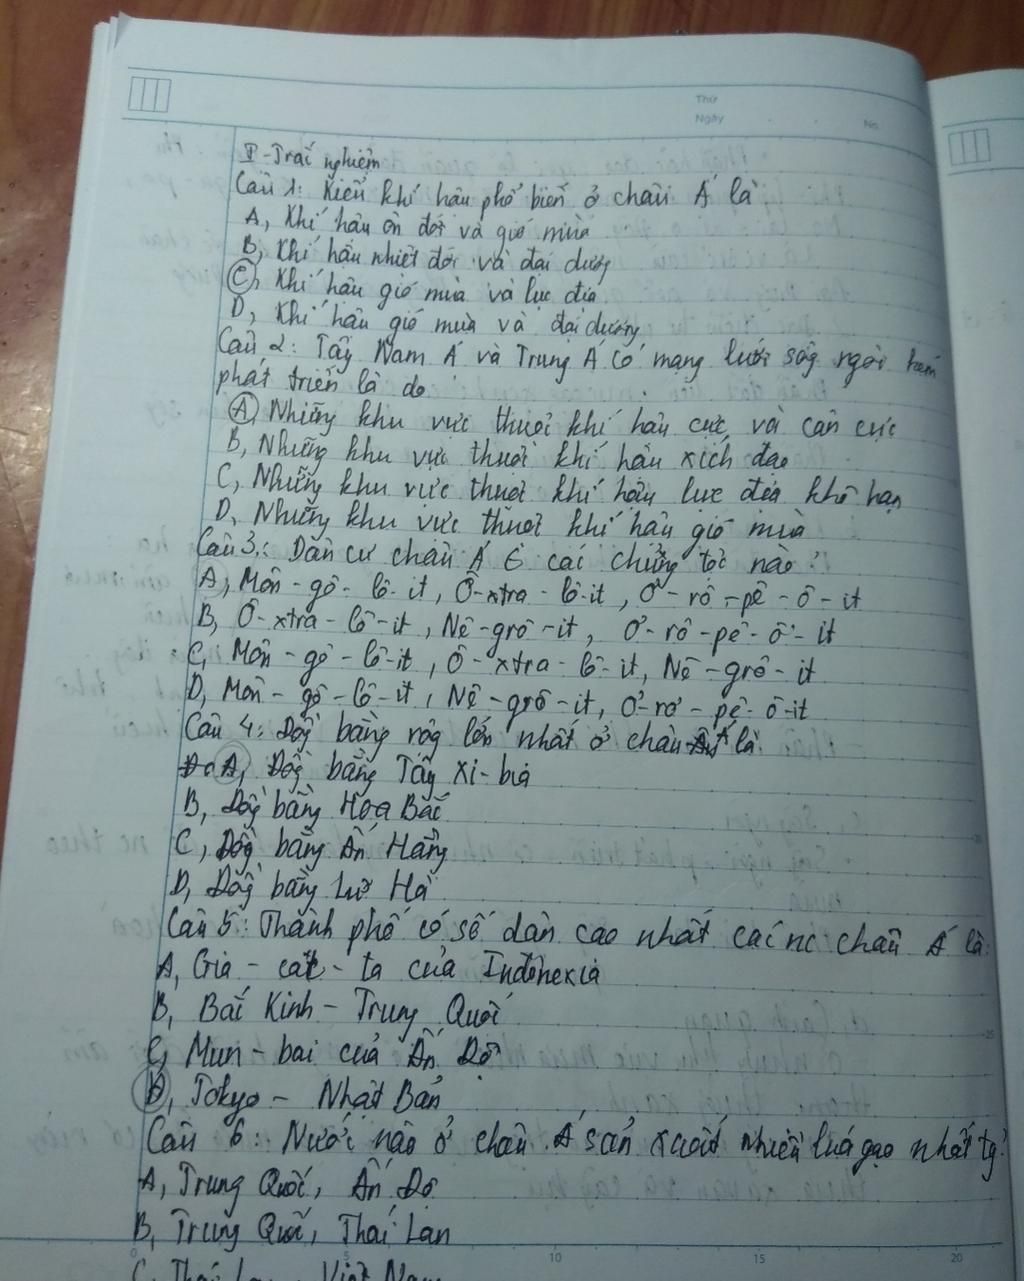 Thứ
Ngày
No.
II - Trắc nghiệm
Câu 1: Kiểu khí hậu phổ biến ở châu Á là
A, Khí hậu ôn đới và gió mùa
B, Khí hậu nhiệt đới và đại dương
C, Khí hậu gió mùa và lục địa
D, Khí hậu gió mùa và đại dương
Câu 2: Tây Nam Á và Trung Á có mạng lưới sông ngòi kém
phát triển là do
A, Những khu vực thuôi khí hậu cực và cận cực
B, Những khu vực thuôi khí hậu xích đạo
C, Những khu vực thuôi khí hậu lục địa khô hạn
D, Những khu vực thuôi khí hậu gió mùa
Câu 3: Dân cư châu Á € các chủng tộc nào?
A, Môn - gô - lô - it, Ô - xtra - lô - it, Ơ - rô - pê - ô - it
B, Ô - xtra - lô - it, Nê - grô - it, Ơ - rô - pê - ô - it
C, Môn - gô - lô - it, Ô - xtra - lô - it, Nê - grô - it
D, Môn - gô - lô - it, Nê - grô - it, Ơ - rơ - pê - ô - it
Câu 4: Đồng bằng rộng lớn nhất ở châu Á là
A, Đồng bằng Tây Xi - bia
B, Đồng bằng Hoa Bắc
C, Đồng bằng Ấn Hằng
D, Đồng bằng Lưỡng Hà
Câu 5: Thành phố có số dân cao nhất các nc châu Á là:
A, Gia - cat - ta của Indonexia
B, Bắc Kinh - Trung Quốc
C, Mun - bai của Ấn Độ
D, Tokyo - Nhật Bản
Câu 6: Nước nào ở châu Á sản xuất nhiều lúa gạo nhất tg?
A, Trung Quốc, Ấn Độ
B, Trung Quốc, Thái Lan
C, Thái Lan, Việt Nam
0 5 10 15 20